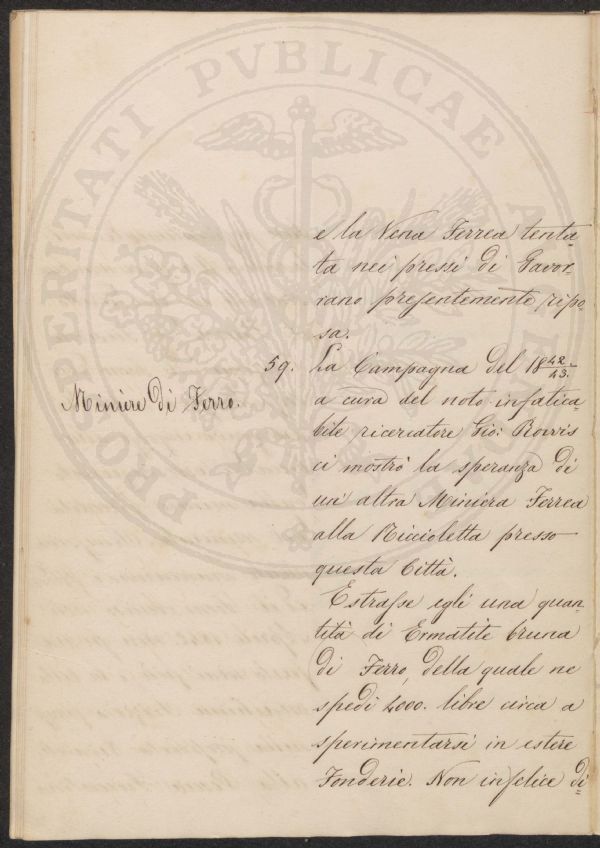 PROSPERITATI PVBLICAE
e la Vena Ferrea tenta=
ta nei pressi di Gavor=
rano presentemente ripo=
sa.
59. La Campagna del 18 42/43.
Miniere di Ferro.
a cura del noto infatica=
bile ricercatore Gio: Rovis
ci mostrò la speranza di
un' altra Miniera Ferrea
alla Niccioletta presso
questa Città.
Estrasse egli una quan=
tità di Ermatite bruna
di Ferro, della quale ne
spedì 2000. libre circa a
sperimentarsi in estere
Fonderie. Non infelice di=